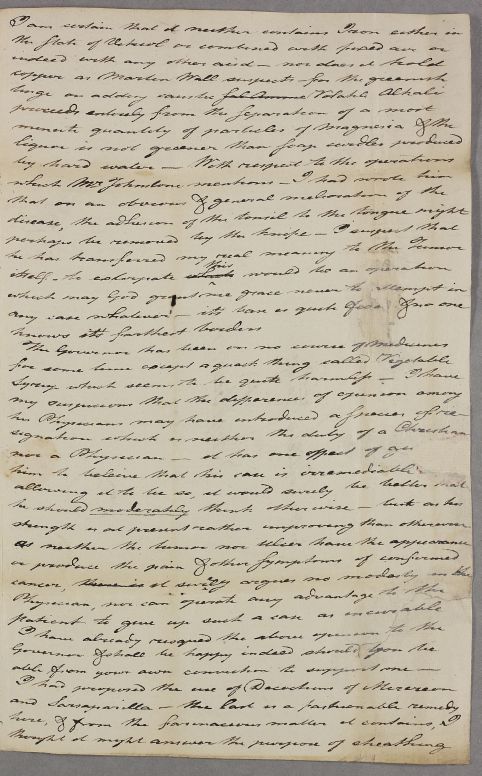 I am certain that it neither contains Iron either in
the State of Vitriol or combined with fixed air or
indeed with any other acid — nor does it hold
copper as Martin Wall suspects — for the greenish
tinge on adding caustic Volatile Alkali
proceeds entirely from the separation of a most
minute quantity of particles of Magnesia & the
liquor is not greener than soap curdles produced
by hard water — With respect to the operations
which Mr. Johnstone mentions — I had wrote him
that on an obvious & general melioration of the
disease, the adhesion of the tonsil to the tongue might
perhaps be removed by the knife — I suspect that
he has transferred my real meaning to the Tumor
itself — to extirpate which this would be an operation
which may God grant me grace never to attempt in
any case whatever — its base is quite fixed & no one
knows its farthest borders
The Governor has been on no course of medicines
for some time except a quack thing called Vegetable
Syrup which seems to be quite harmless — I have
my suspicions that the difference of opinion among
his Physicians may have introduced a species of re-
signation which is neither the duty of a Christian
nor a Physician — it has one effect of
him to beleive that his case is irremediable
allowing it to be so, it would surely be better that
he should moderately think otherwise — but as his
strength is at present rather improving than otherwise
as neither the tumor nor ulcer have the appearance
or produce the pain & other symptoms of confirmed
cancer, it surely argues no modesty in the
Physician, nor can operate any advantage to the
patient to give up such a case as incurable
I have already risqued the above opinion to the
Governor & shall be happy indeed should you be
able from your own conviction to support me —
I had proposed the use of Decoctions of Mezereon
and Sarsaparilla — the last is a fashionable remedy
here, & from the farinaceous matter it contains, I
thought it might answer the purpose of sheathing